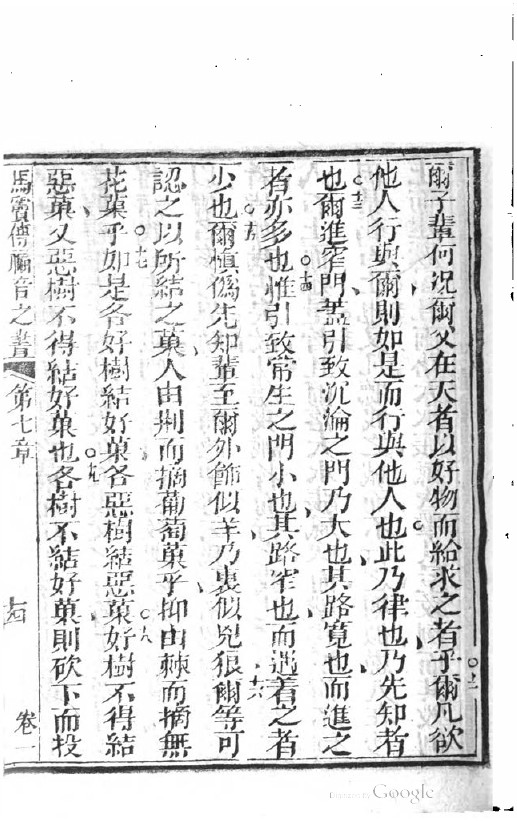 爾子輩何况爾父在天者以好物而給求之者乎爾凡欲
他人行與爾則如是而行與他人也此乃律也乃先知者
也爾進窄門蓋引致沉淪之門乃大也其路寬也而進之
者亦多也惟引致常生之門小也其路窄也而遇着之者
少也爾慎僞先知輩至爾外飾似羊乃裏似兇狼爾等可
認之以所結之菓人由荆而摘葡萄菓乎抑由棘而摘無
花菓乎如是各好樹結好菓各惡樹結惡菓好樹不得結
惡菓又惡樹不得結好菓也各樹不結好菓則砍下而投
馬竇傳福音之書 第七章 十四 卷一
Google